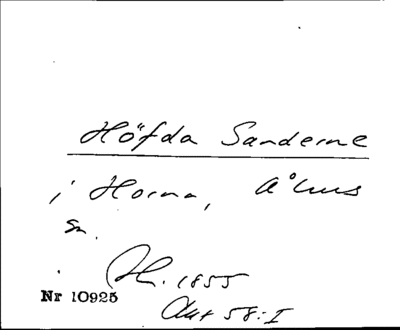 Höfda Sanderne
i Horna, Åhus
sn.
H. 1855
Nr 10925
Akt 58:I